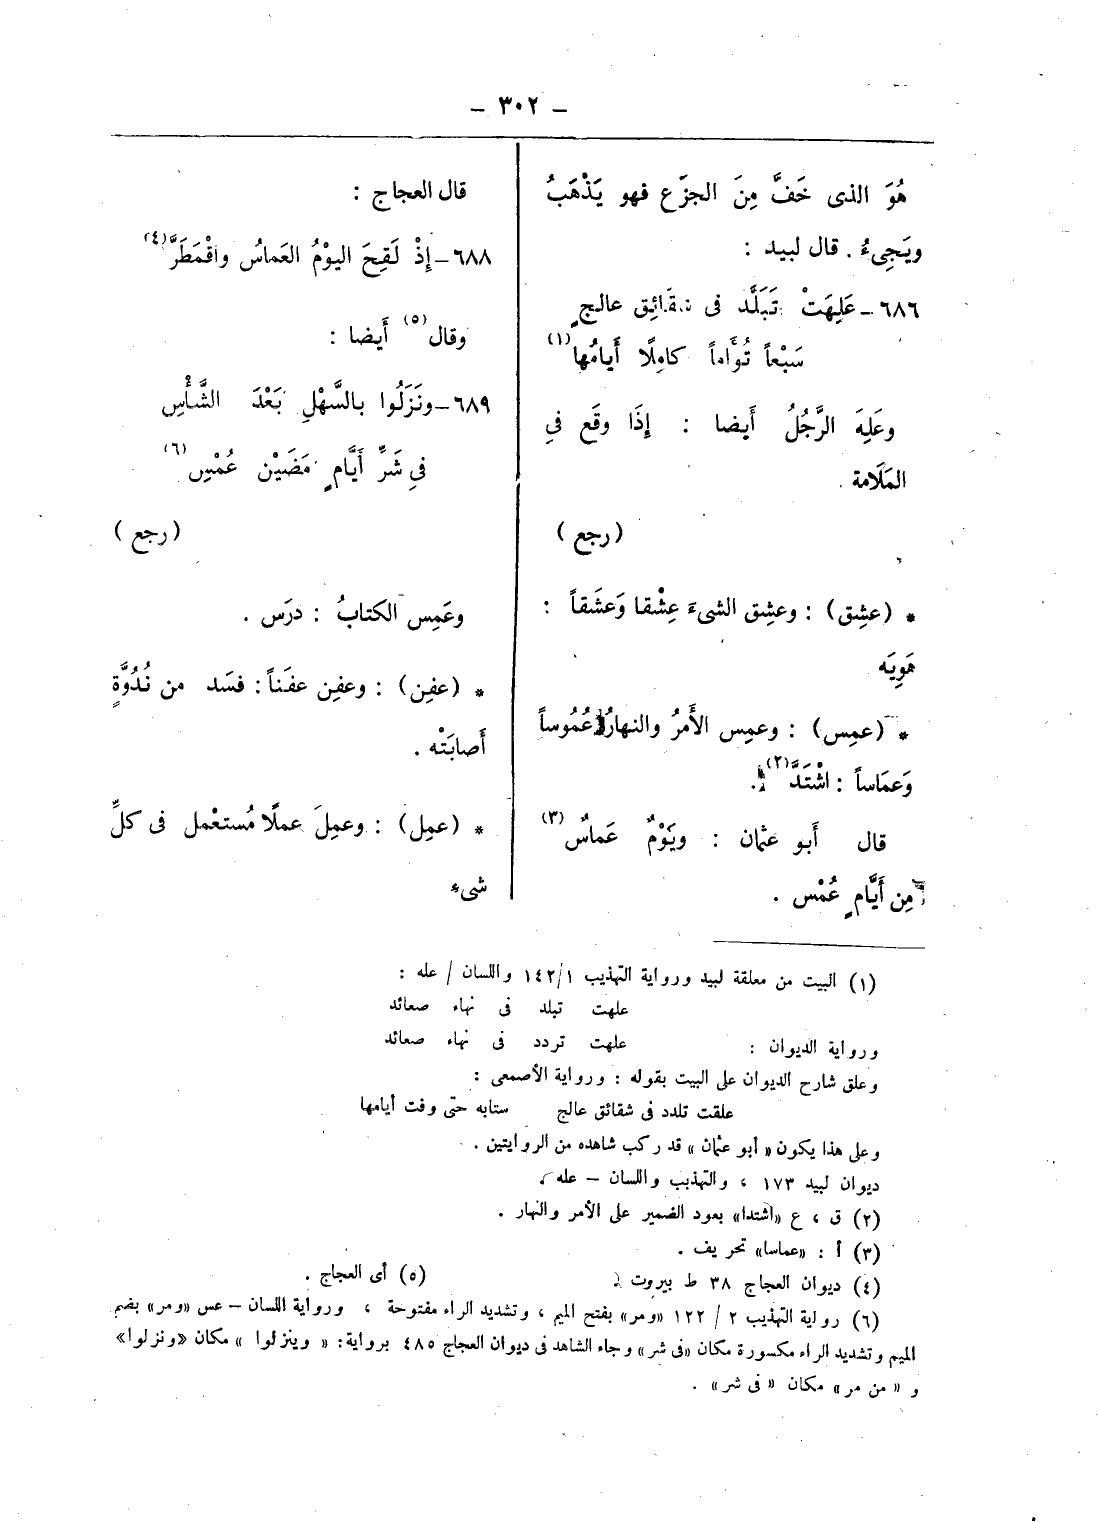 – ٣٠٢ –
هُوَ الذى خَفَّ مِنَ الجزَع فهو يَذْهَبُ
ويَجِىءُ . قال لبيد :
٦٨٦ – عَلِهَتْ تَبَلَّد فى شقَائِق عالجٍ
سَبْعاً تُؤَاماً كاملًا أَيامُها(١)
وعَلِهَ الرَّجُلُ أَيضا : إِذَا وقَع فىِ
المَلَامة .
(رجع)
* (عشِق) : وعشِق الشىءَ عِشْقا وَعشَقاً :
هَوِيَه
* (عمِس) : وعمِس الأَمرُ والنهارُ عُمُوساً
وَعمَاساً : اشْتَدَّ(٢).
قال أَبو عثمان : ويَوْمٌ عَماسٌ(٣)
مِن أَيَّامٍ عُمْس .
قال العجاج :
٦٨٨ – إِذْ لَقِحَ اليوْمُ العَماسُ واقْمَطَرَّ(٤)
وقال(٥) أَيضا :
٦٨٩ – ونَزَلُوا بالسَّهْلِ بَعْدَ الشَّأْسِ
فىِ شَرِّ أَيَّامٍ مَضَيْن عُمْسِ(٦)
(رجع)
وعَمِس الكتابُ : درَس .
* (عفِن) : وعفِن عفَناً : فسَد من نُدُوَّةٍ
أَصابَتْه .
* (عمِل) : وعمِلَ عملًا مُستعْمل فى كلِّ
شىء
(١) البيت من معلقة لبيد ورواية التهذيب ١٤٢/١ واللسان / عله :
علهت تبلد فى نهاء صعائد
ورواية الديوان : علهت تردد فى نهاء صعائد
وعلق شارح الديوان على البيت بقوله : ورواية الأصمعى :
علقت تلدد فى شقائق عالج ستابه حتى وفت أيامها
وعلى هذا يكون « أبو عثمان » قد ركب شاهده من الروايتين .
ديوان لبيد ١٧٣ ، والتهذيب واللسان – عله .
(٢) ق ، ع «اشتدا» بعود الضمير على الأمر والنهار .
(٣) أ : «عماسا» تحريف .
(٤) ديوان العجاج ٣٨ ط بيروت (٥) أى العجاج .
(٦) رواية التهذيب ٢ / ١٢٢ «ومر» بفتح الميم ، وتشديد الراء مفتوحة ، ورواية اللسان – عس «ومر» بضم
الميم وتشديد الراء مكسورة مكان «فى شر» وجاء الشاهد فى ديوان العجاج ٤٨٥ برواية: « وينزلوا » مكان «ونزلوا»
و « من مر» مكان « فى شر» .